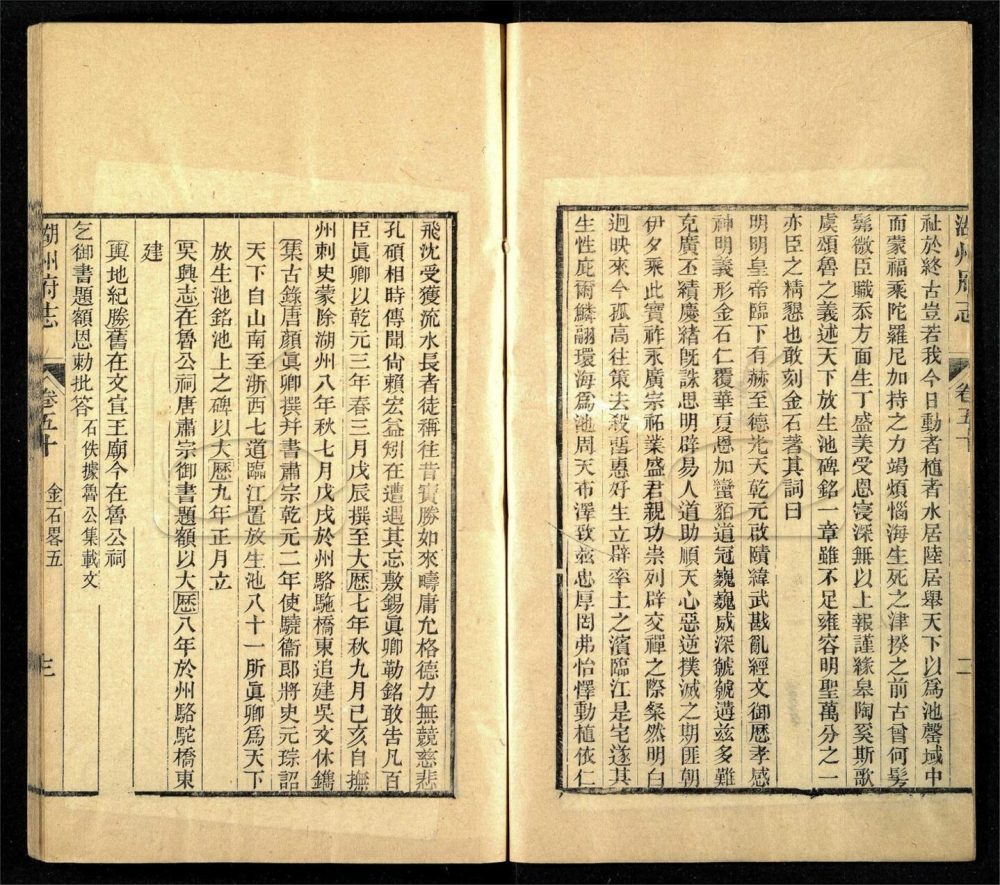 湖州府志
卷五十
二
祉於終古豈若我今日動者植者水居陸居舉天下以爲池罄域中
而蒙福乘陀羅尼加持之力竭煩惱海生死之津揆之前古曾何髣
髴微臣職忝方面生丁盛美受恩寖深無以上報謹緣臯陶奚斯歌
虞頌魯之義述天下放生池碑銘一章雖不足雍容明聖萬分之一
亦臣之精懇也敢刻金石著其詞曰
明明皇帝臨下有赫至德光天乾元啟賾緯武戡亂經文御厯孝感
神明義形金石仁覆華夏恩加蠻貊道冠巍巍威深虩虩遘兹多難
克廣丕績慶緒旣誅思明辟易人道助順天心惡逆撲滅之期匪朝
伊夕乘此寶祚永廣宗祏業盛君親功崇列辟交禪之際粲然明白
迥映來今孤高往策去殺畱惠好生立辟率土之濱臨江是宅遂其
生性庇爾鱗翮環海爲池周天布澤致兹忠厚罔弗怡懌動植依仁
飛沈受獲流水長者徒稱往昔寶勝如來疇庸允格德力無競慈悲
孔碩相時傳聞尙賴宏益矧在遭遇其忘敷錫眞卿勒銘敢告凡百
臣眞卿以乾元三年春三月戊辰撰至大厯七年秋九月己亥自撫
州刺史蒙除湖州八年秋七月戊戌於州駱駞橋東追建吳文休鐫
集古錄唐顏眞卿撰幷書肅宗乾元二年使驍衞郎將史元琮詔
天下自山南至浙西七道臨江置放生池八十一所眞卿爲天下
放生池銘池上之碑以大厯九年正月立
吳興志在魯公祠唐肅宗御書題額以大厯八年於州駱駝橋東
建
輿地紀勝舊在文宣王廟今在魯公祠
乞御書題額恩勅批答 石佚據魯公集載文
湖州府志
卷五十 金石畧五